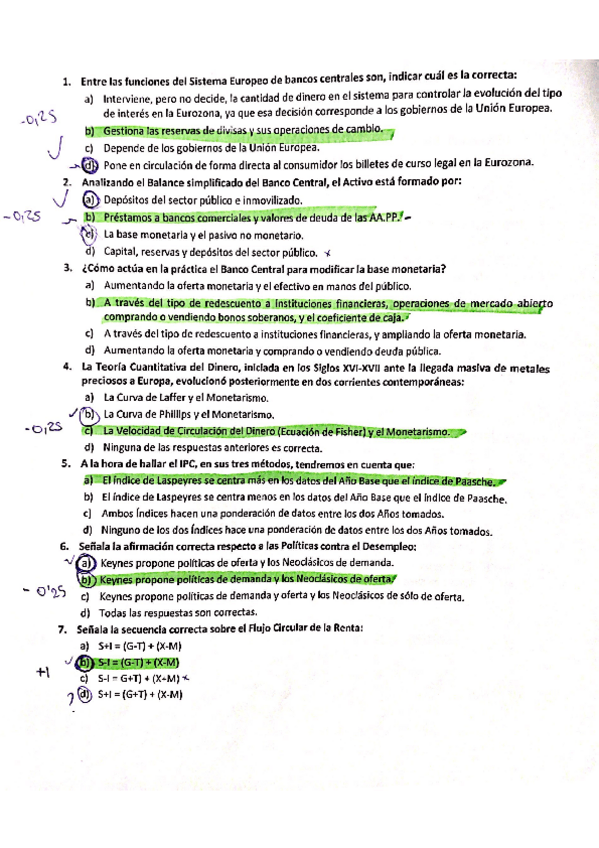 1. Entre las funciones del Sistema Europeo de bancos centrales son, indicar cuál es la correcta:
a) Interviene, pero no decide, la cantidad de dinero en el sistema para controlar la evolución del tipo
de interés en la Eurozona, ya que esa decisión corresponde a los gobiernos de la Unión Europea.
-0,25
b) Gestiona las reservas de divisas y sus operaciones de cambio.
c) Depende de los gobiernos de la Unión Europea.
d) Pone en circulación de forma directa al consumidor los billetes de curso legal en la Eurozona.
2. Analizando el Balance simplificado del Banco Central, el Activo está formado por:
a) Depósitos del sector público e inmovilizado.
-0,25
b) Préstamos a bancos comerciales y valores de deuda de las AA.PP.
c) La base monetaria y el pasivo no monetario.
d) Capital, reservas y depósitos del sector público. x
3. ¿Cómo actúa en la práctica el Banco Central para modificar la base monetaria?
a) Aumentando la oferta monetaria y el efectivo en manos del público.
b) A través del tipo de redescuento a instituciones financieras, operaciones de mercado abierto
comprando o vendiendo bonos soberanos, y el coeficiente de caja.
c) A través del tipo de redescuento a instituciones financieras, y ampliando la oferta monetaria.
d) Aumentando la oferta monetaria y comprando o vendiendo deuda pública.
4. La Teoría Cuantitativa del Dinero, iniciada en los Siglos XVI-XVII ante la llegada masiva de metales
preciosos a Europa, evolucionó posteriormente en dos corrientes contemporáneas:
a) La Curva de Laffer y el Monetarismo.
b) La Curva de Phillips y el Monetarismo.
-0,25
c) La Velocidad de Circulación del Dinero (Ecuación de Fisher) y el Monetarismo.
d) Ninguna de las respuestas anteriores es correcta.
5. A la hora de hallar el IPC, en sus tres métodos, tendremos en cuenta que:
a) El índice de Laspeyres se centra más en los datos del Año Base que el índice de Paasche.
b) El índice de Laspeyres se centra menos en los datos del Año Base que el índice de Paasche.
c) Ambos índices hacen una ponderación de datos entre los dos Años tomados.
d) Ninguno de los dos índices hace una ponderación de datos entre los dos Años tomados.
6. Señala la afirmación correcta respecto a las Políticas contra el Desempleo:
a) Keynes propone políticas de oferta y los Neoclásicos de demanda.
b) Keynes propone políticas de demanda y los Neoclásicos de oferta.
-0'25
c) Keynes propone políticas de demanda y oferta y los Neoclásicos de sólo de oferta.
d) Todas las respuestas son correctas.
7. Señala la secuencia correcta sobre el Flujo Circular de la Renta:
a) S+I = (G-T) + (X-M)
b) S-I = (G-T) + (X-M)
+1
c) S-I = G+T) + (X+M) x
? d) S+I = (G+T) + (X-M)